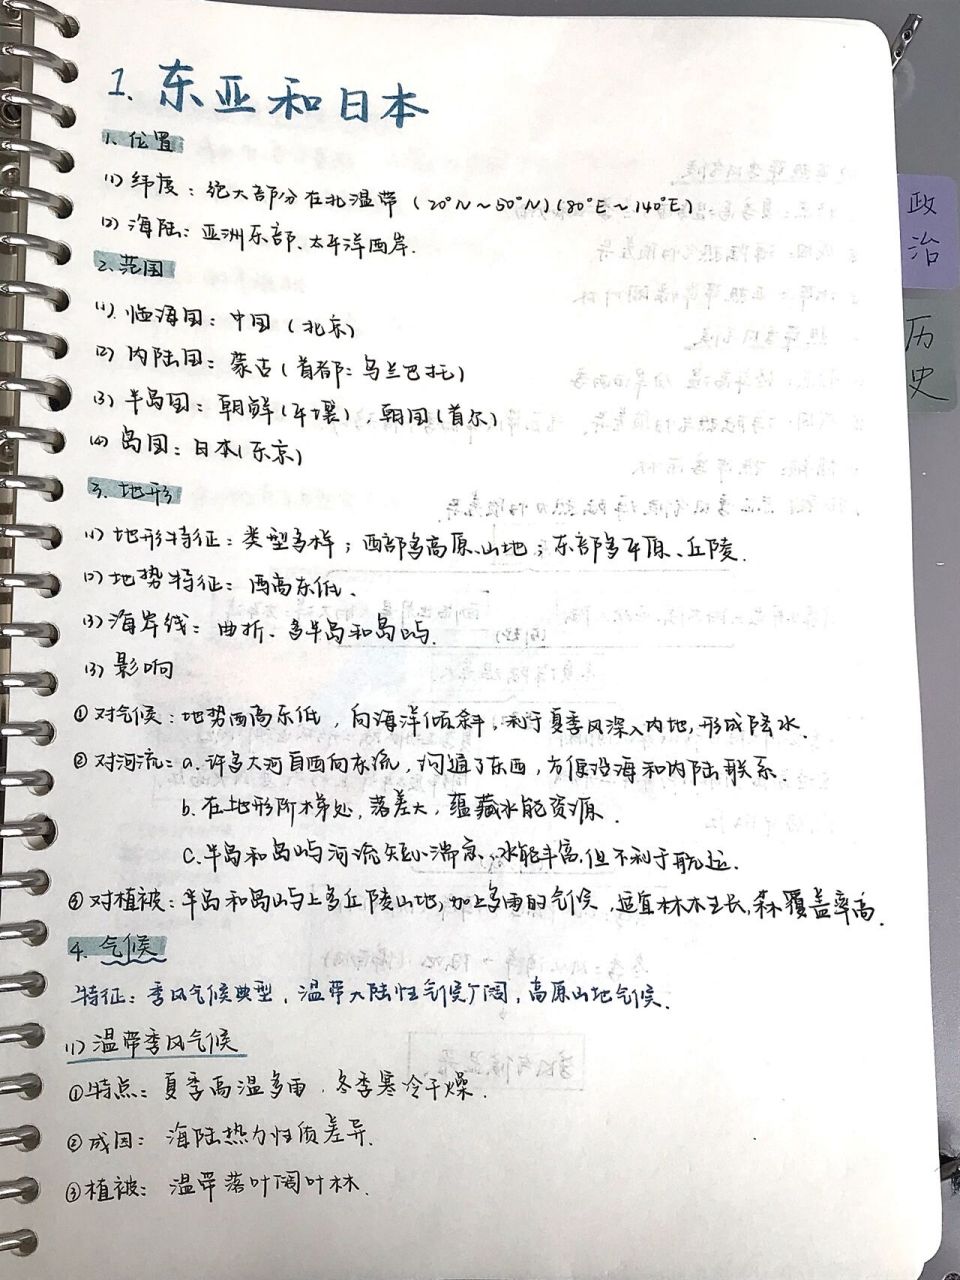 1. 东亚和日本
1. 位置
(1) 纬度：绝大部分在北温带（20°N～50°N)(80°E～140°E)
(2) 海陆：亚洲东部、太平洋西岸.
2. 范围
(1). 临海国：中国（北京）
(2) 内陆国：蒙古（首都：乌兰巴托）
(3) 半岛国：朝鲜（平壤）、韩国（首尔）
(4) 岛国：日本（东京）
3. 地形
(1) 地形特征：类型多样；西部多高原、山地；东部多平原、丘陵.
(2) 地势特征：西高东低.
(3) 海岸线：曲折、多半岛和岛屿.
(3) 影响
①对气候：地势西高东低，向海洋倾斜，利于夏季风深入内地，形成降水.
②对河流：a. 许多大河自西向东流，沟通了东西，方便沿海和内陆联系.
b. 在地形阶梯处，落差大，蕴藏水能资源.
C. 半岛和岛屿河流短小湍急、水能丰富，但不利于航运.
③对植被：半岛和岛屿上多丘陵山地，加上多雨的气候，适宜林木生长，森覆盖率高.
4. 气候
特征：季风气候典型，温带大陆性气候广阔，高原山地气候.
(1) 温带季风气候
①特点：夏季高温多雨，冬季寒冷干燥.
②成因：海陆热力性质差异.
③植被：温带落叶阔叶林.
政治
历史